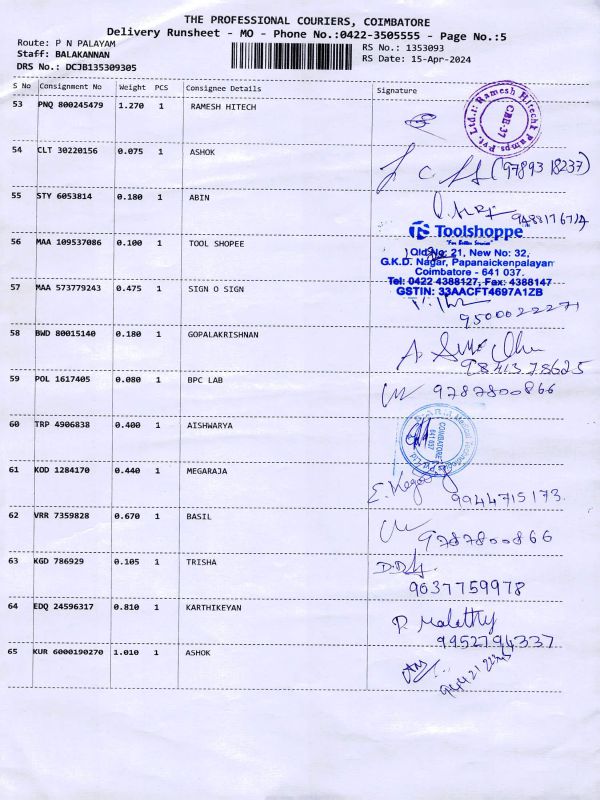 THE PROFESSIONAL COURIERS, COIMBATORE
Delivery Runsheet - MO - Phone No.:0422-3505555 - Page No.:5
Route: P N PALAYAM
Staff: BALAKANNAN
DRS No.: DCJB135309305
RS No.: 1353093
RS Date: 15-Apr-2024
S No Consignment No Weight PCS Consignee Details Signature
53 PNQ 800245479 1.270 1 RAMESH HITECH
Ramesh Hitech Pumps Pvt. Ltd.
CBE-37
54 CLT 30220156 0.075 1 ASHOK
(9789318237)
55 STY 6053814 0.180 1 ABIN
Toolshoppe
"For Better Service"
56 MAA 109537086 0.100 1 TOOL SHOPEE
Old No: 21, New No: 32,
G.K.D. Nagar, Papanaickenpalayam
Coimbatore - 641 037.
Tel: 0422 4388127, Fax: 4388147
GSTIN: 33AACFT4697A1ZB
57 MAA 573779243 0.475 1 SIGN O SIGN
9500022271
58 BWD 80015140 0.180 1 GOPALAKRISHNAN
9841378625
59 POL 1617405 0.080 1 BPC LAB
9787800866
60 TRP 4906838 0.400 1 AISHWARYA
COIMBATORE
641 037
61 KOD 1284170 0.440 1 MEGARAJA
9944715173.
62 VRR 7359828 0.670 1 BASIL
9787800866
63 KGD 786929 0.105 1 TRISHA
9037759978
64 EDQ 24596317 0.810 1 KARTHIKEYAN
P. Malathy
9952794337
65 KUR 6000190270 1.010 1 ASHOK